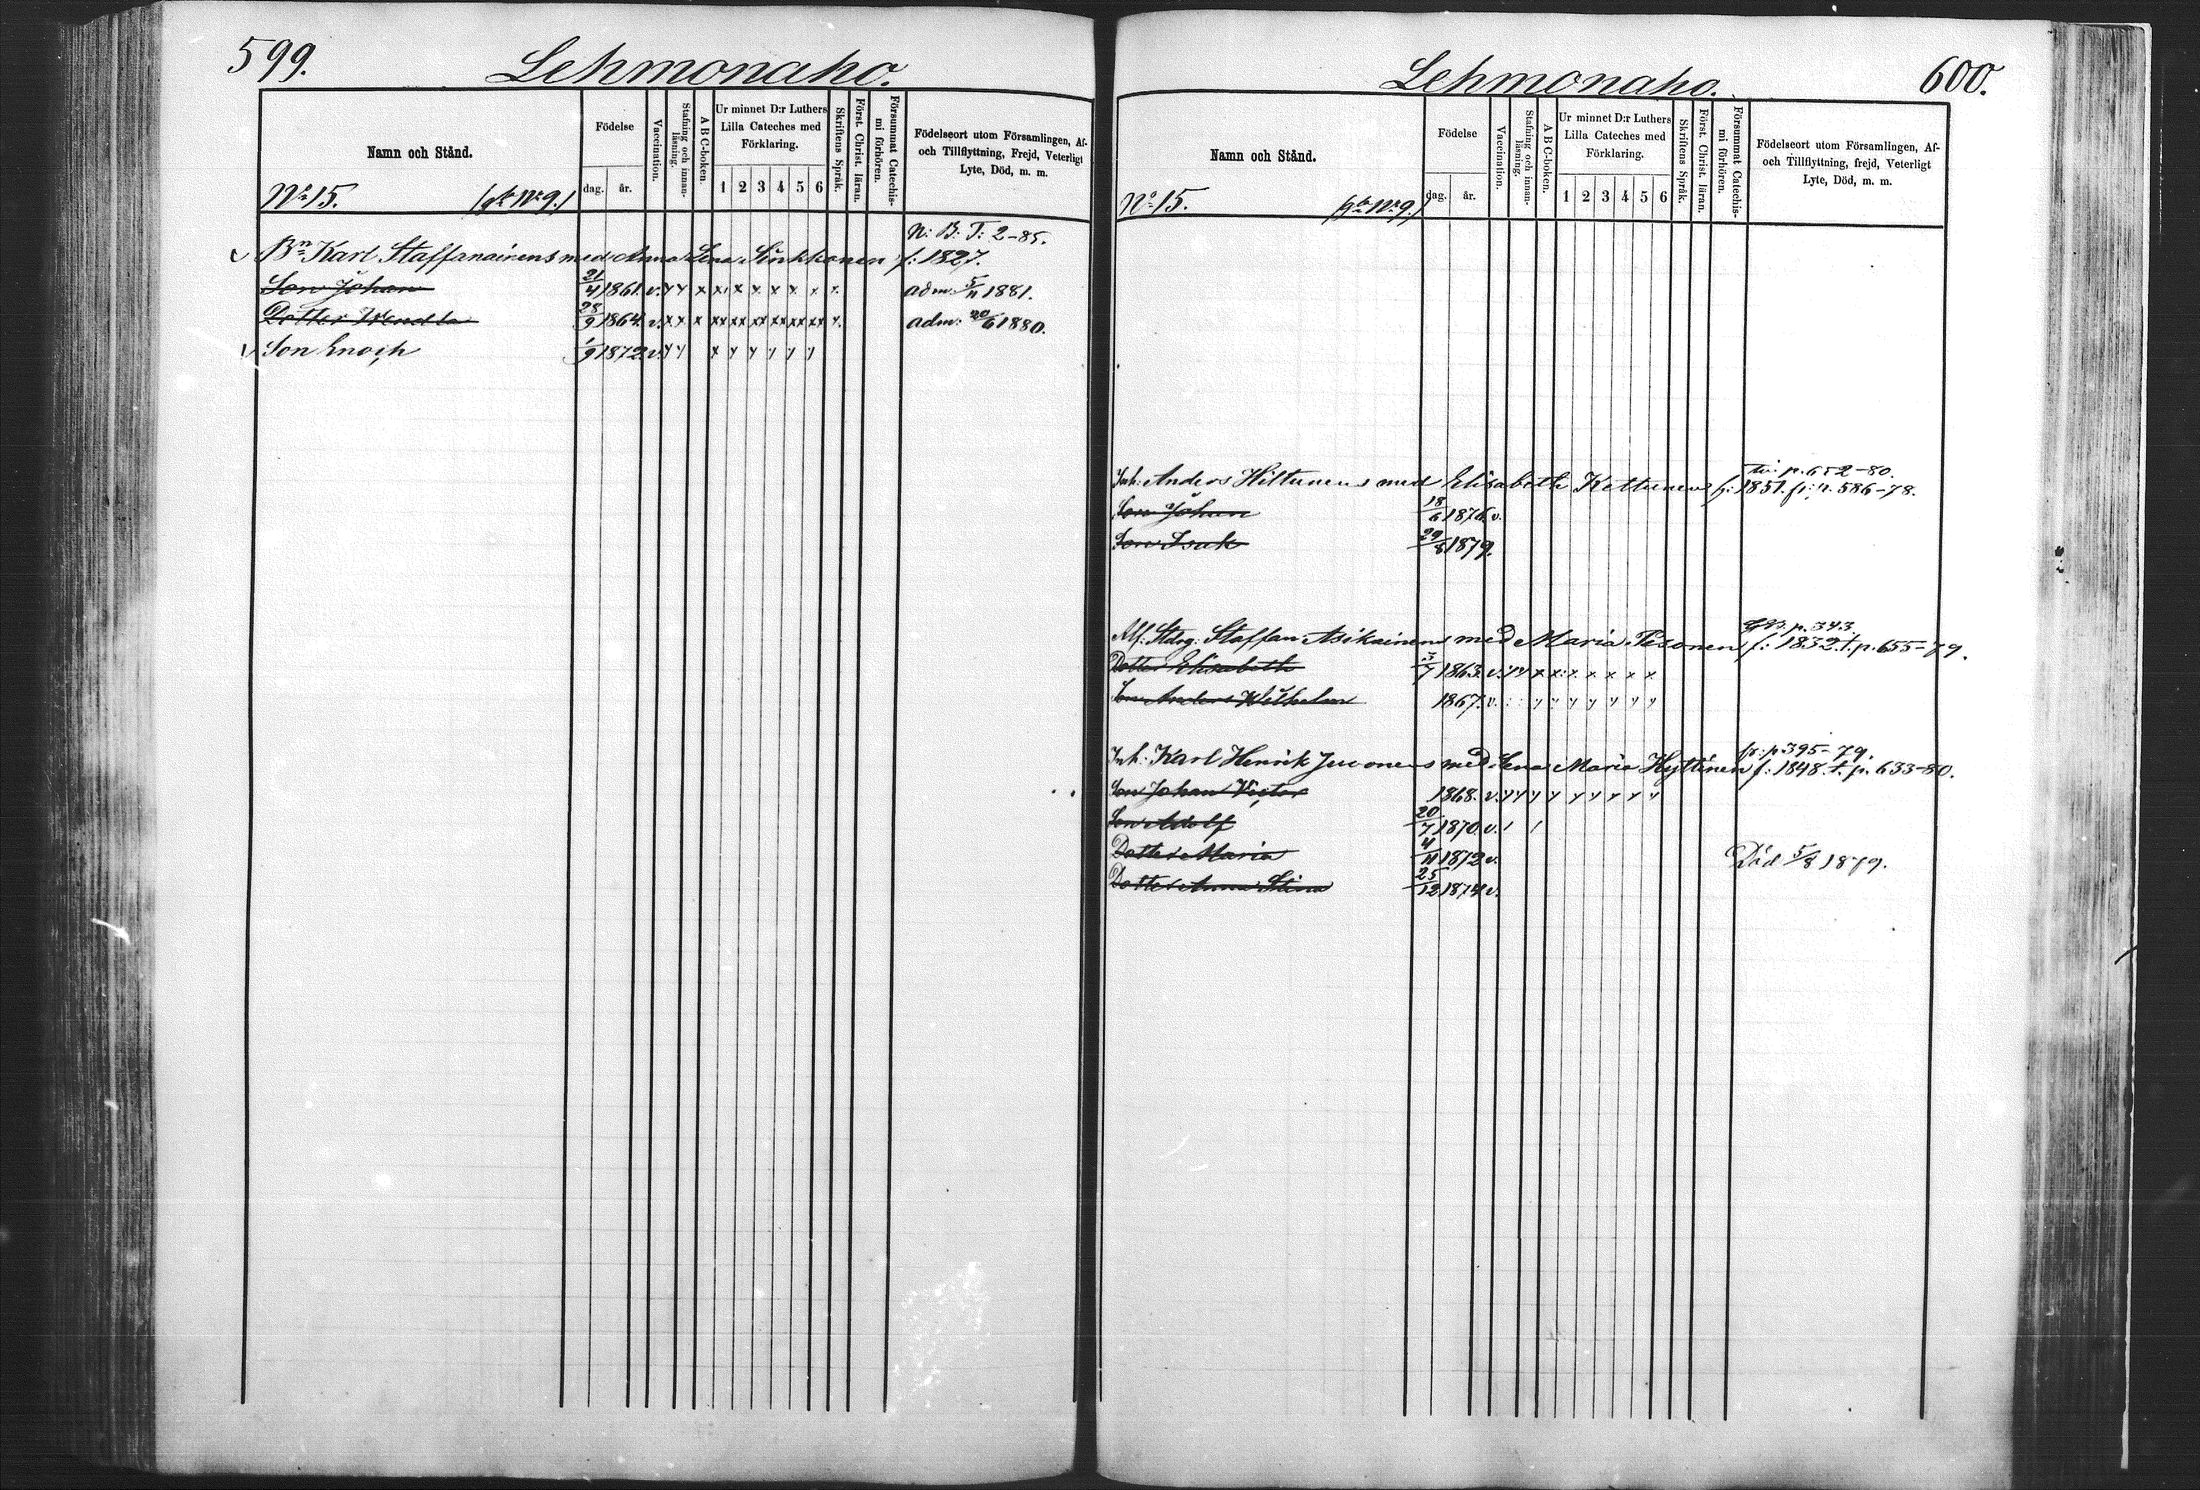 599.
Lehmonaho.
Namn och Stånd.
Födelse
dag. år.
Vaccination.
Stafning och innanläsning.
A B C-boken.
Ur minnet D:r Luthers Lilla Cateches med Förklaring.
1 2 3 4 5 6
Skriftens Språk.
Först. Christ. läran.
Försummat Catechismi förhören.
Födelseort utom Församlingen, Af- och Tillflyttning, Frejd, Veterligt Lyte, Död, m. m.
No 15. No 9.)
N: B: T: 2-85.
v Bn Karl Staffanainens med Anna Lena Sinkkonen f: 1827.
Son Johan 21/4 1861. v. y y x x x x x x x x adm. 5/11 1881.
Dotter Wendla 28/9 1864. v. x x x xx xx xx xx xx xx x. adm: 20/6 1880.
v Son Enoch 1/9 1872. v. y y x y y y y y
600.
Lehmonaho.
Namn och Stånd.
Födelse
dag. år.
Vaccination.
Stafning och innanläsning.
A B C-boken.
Ur minnet D:r Luthers Lilla Cateches med Förklaring.
1 2 3 4 5 6
Skriftens Språk.
Först. Christ. läran.
Försummat Catechismi förhören.
Födelseort utom Församlingen, Af- och Tillflyttning, frejd, Veterligt Lyte, Död, m. m.
No 15. No 9.)
p. 652-80.
Inh: Anders Hiltunens med Elisabeth Kettunen f: 1851. fr: p. 586-78.
Son Johan 18/6 1876. v.
Son Isak 29/8 1879.
p. 343.
Afl: Stdrg: Staffan Asikainens med Maria Pesonen f: 1832. t. p. 655-79.
Dotter Elisabeth 3/7 1863. v. y y x x x x x x x
Son Anders Wilhelm 1867. v. y y y y y y y
fr: p 395-79.
Inh: Karl Henrik Juvonens med Lena Maria Hyttinen f: 1848. t. p. 633-80.
Son Johan Victor 1868. v. y y y y y y y y y
Son Adolf 20/7 1870. v. / /
Dotter Maria 4/11 1872 v. Död 5/8 1879.
Dotter Anna Stina 25/12 1874 v.